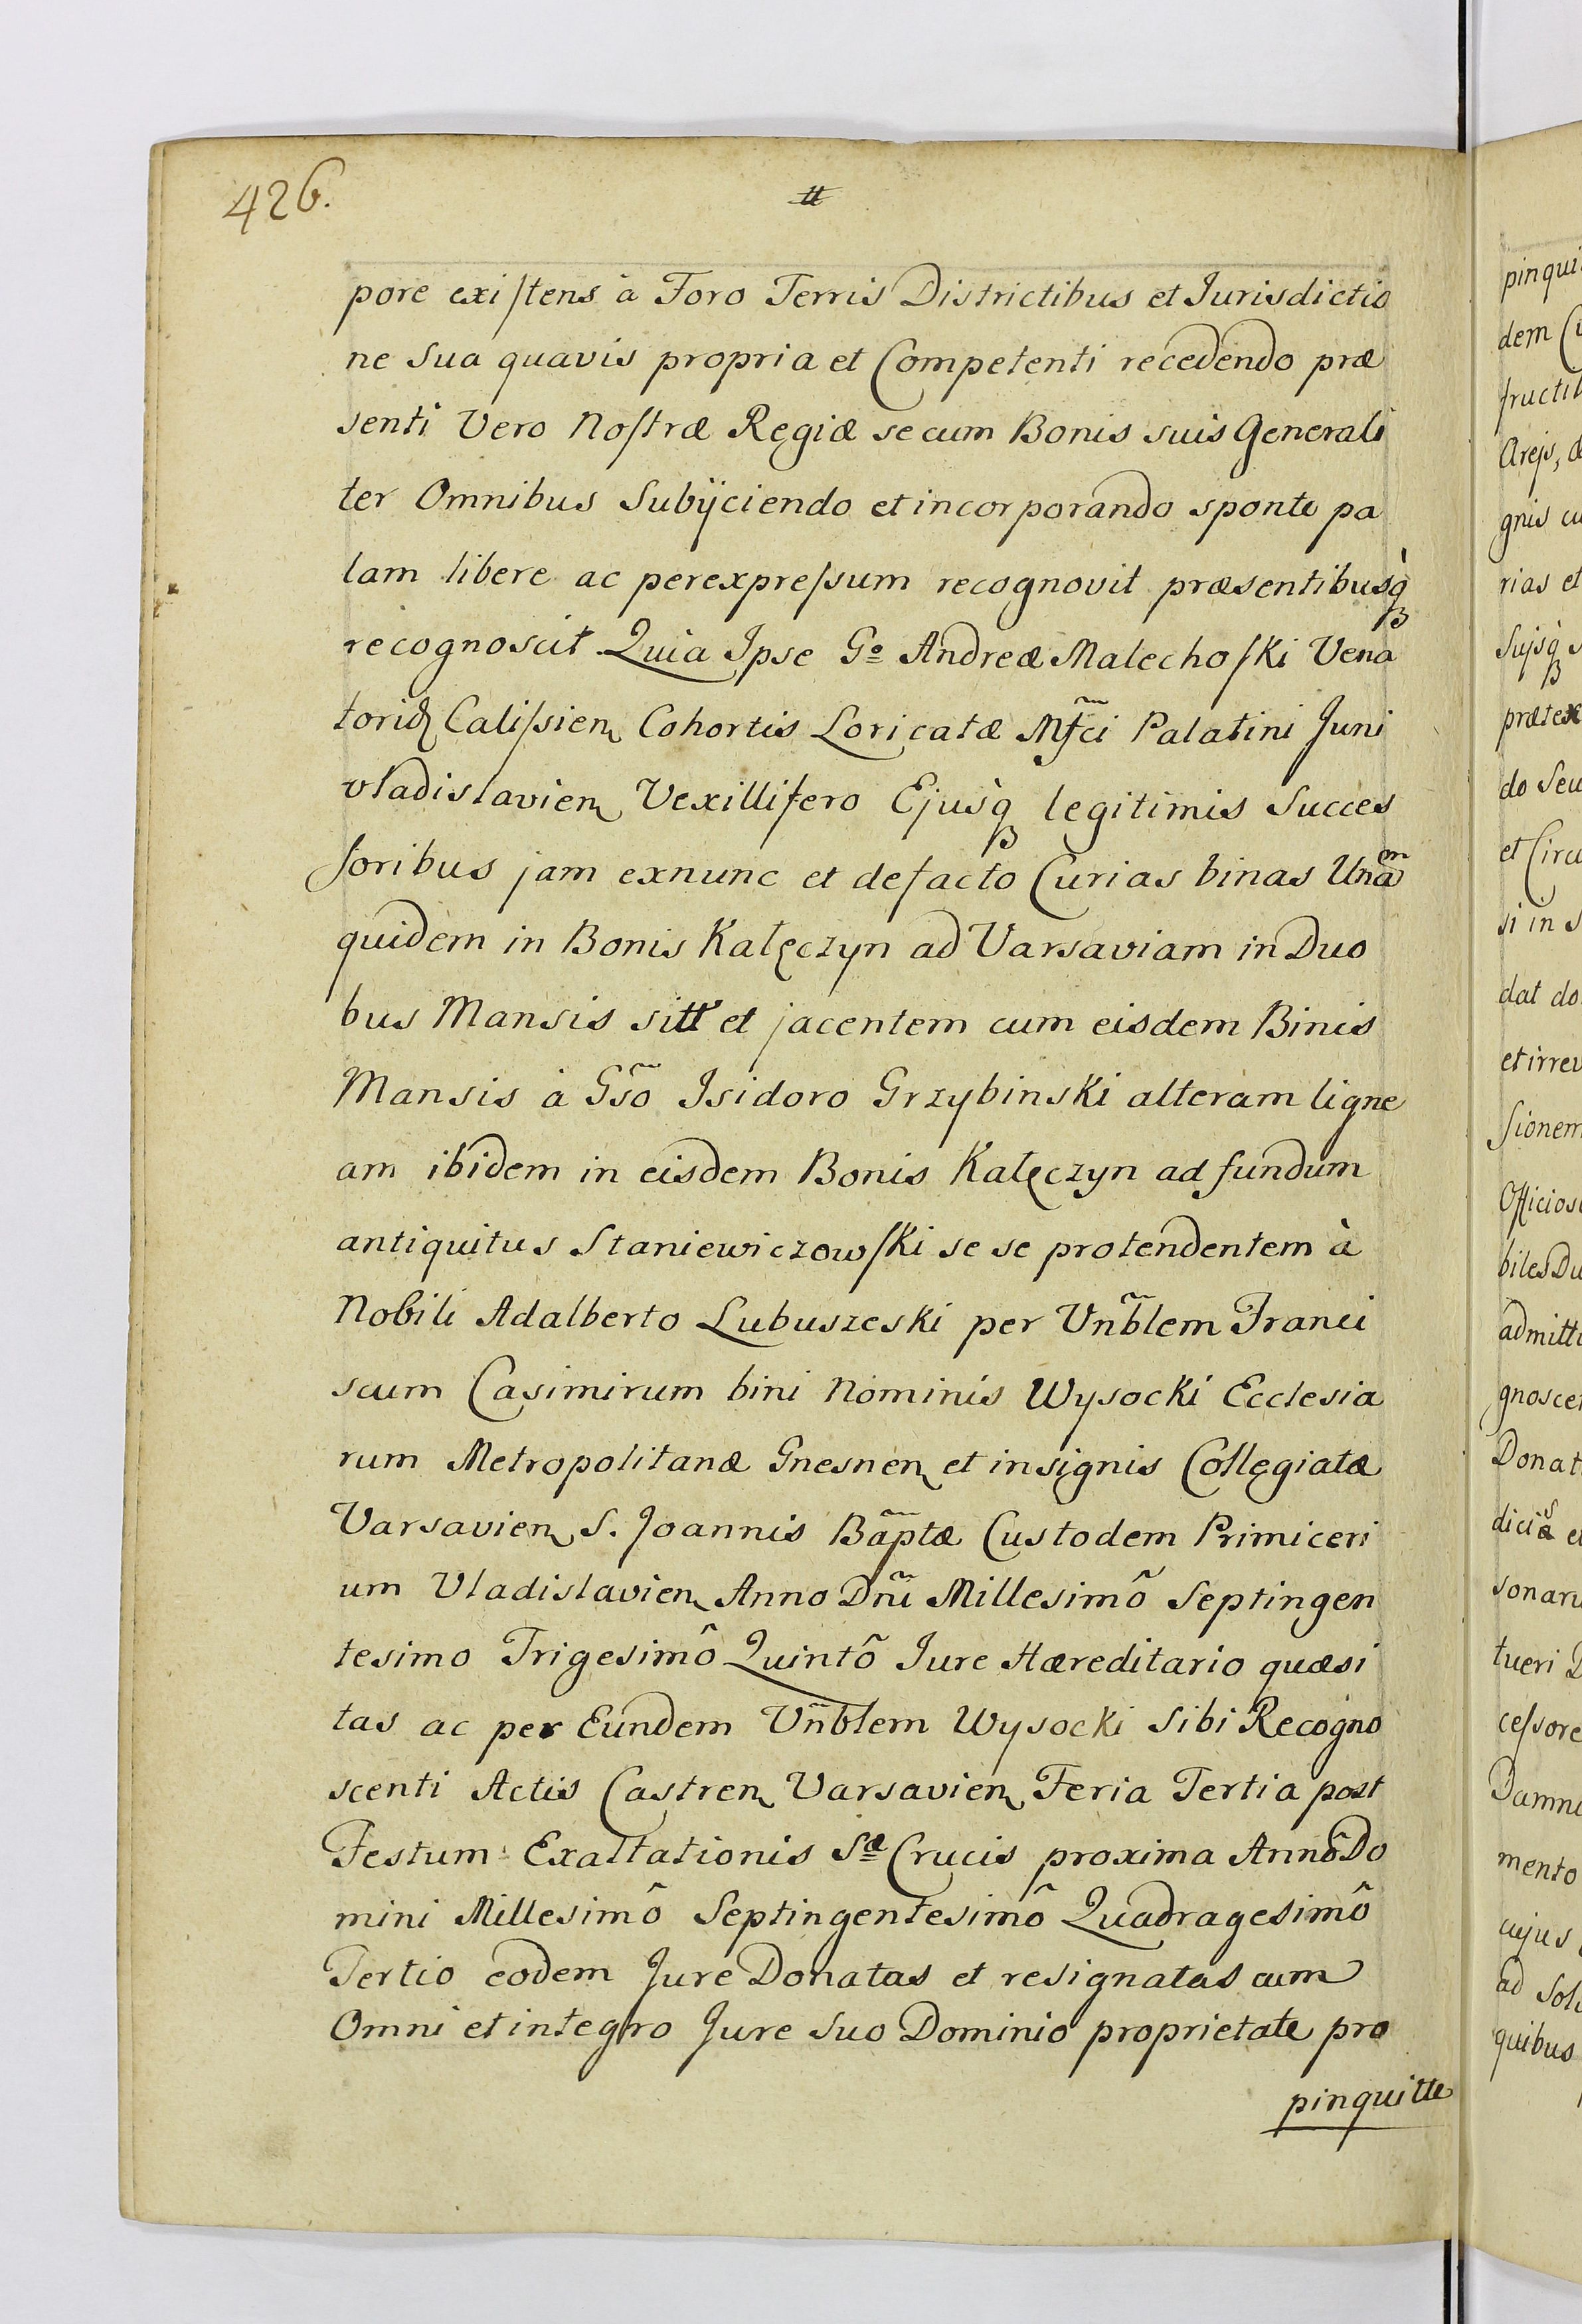 426.
tt
pore existens à Foro Terris Districtibus et Jurisdictio
ne Sua quavis propria et Competenti recedendo præ
senti Vero Nostræ Regiæ se cum Bonis suis Generali
ter Omnibus Subijciendo et incorporando sponte pa
lam libere ac perexpressum recognovit præsentibusq̀
recognoscit Quia Ipse Go Andreæ Malechoski Vena
Calissien Cohortis Loricatæ Mf̃ci Palatini Juni
vladislavien Vexillifero Ejusq̀ legitimis Succes
soribus jam exnunc et defacto Curias binas Unam
quidem in Bonis Kałęczyn ad Varsaviam in Duo
bus Mansis sitt et jacentem cum eisdem Binis
Mansis à Gs̃o Isidoro Grzybinski alteram ligne
am ibidem in eisdem Bonis Kałęczyn ad fundum
antiquitus Staniewiczowski se se protendentem à
Nobili Adalberto Lubuszeski per Vñblem Franci
scum Casimirum bini Nominis Wysocki Ecclesia
rum Metropolitanæ Gnesnen et insignis Collegiatæ
Varsavien S. Joannis Bãptæ Custodem Primiceri
um Vladislavien Anno Dñi Millesimô Septingen
tesimo Trigesimô Quintô Jure Hæreditario quæsi
tas ac per Eundem Vñblem Wysocki Sibi Recogno
scenti Actis Castren Varsavien Feria Tertia post
Festum Exaltationis Sæ Crucis proxima Annô Do
mini Millesimô Septingentesimô Quadragesimô
Tertio eodem Jure Donatas et resignatas cum
Omni et integro Jure Suo Dominio proprietate pro
pinquitte
pinqui
dem
rias et
prætex
do Seu
et Circu
si in s
dat do
et irrev
sionem
Officios
biles Du
admitt
gnosce
Donat
sonaru
tueri D
cessore
Damn
mento
cujus
ad Sol
quibus